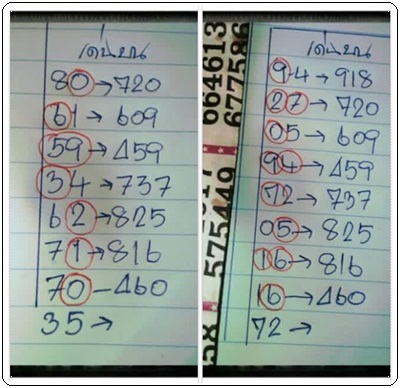 เด่นบน
80→720
61→609
59→459
34→737
62→825
71→816
70–460
35→
664613
677586
575449
58
เด่นบน
94→918
27→720
05→609
94→459
72→737
05→825
16→816
16→460
72→